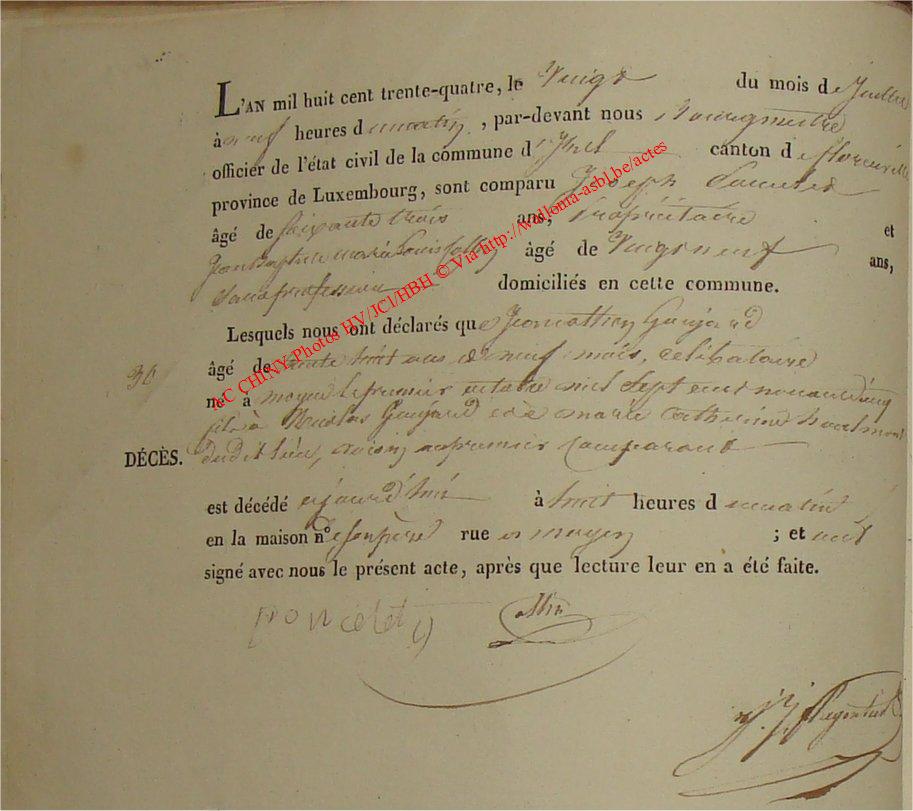 L'AN mil huit cent trente-quatre, le Vingt du mois de Juillet
à neuf heures du matin, par-devant nous Bourgmestre
officier de l'état civil de la commune d'Izel canton de florenville
province de Luxembourg, sont comparu Joseph
âgé de soixante trois ans, Propriétaire et
Jean Baptiste marie Louis Collin âgé de Vingt neuf ans,
sans profession domiciliés en cette commune.
Lesquels nous ont déclarés que Jean mathieu Goujard
âgé de trente huit ans et neuf mois, celibataire
36
né à moyen le premier octobre mil sept cent nonante cinq
fils à Nicolas Goujard et à marie catherine
DÉCÈS. dudit lieu, voisin au premier Comparant
est décédé aujourd'hui à huit heures du matin
en la maison n° de son père rue en moyen ; et ont
signé avec nous le présent acte, après que lecture leur en a été faite.
poncelet
Collin
AC CHINY Photos HV/JCl/HBH © Via http://walloma-asbl.be/actes